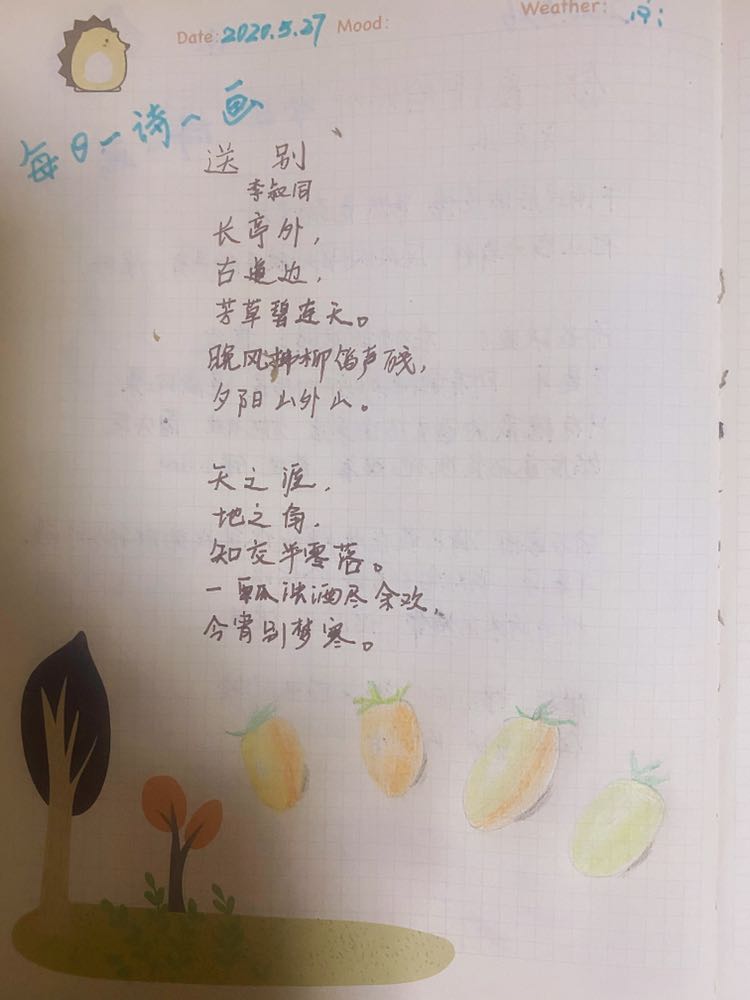 Date: 2020.5.27 Mood: Weather:
每日一诗一画
送别
李叔同
长亭外，
古道边，
芳草碧连天。
晚风拂柳笛声残，
夕阳山外山。
天之涯，
地之角，
知交半零落。
一瓢浊酒尽余欢，
今宵别梦寒。